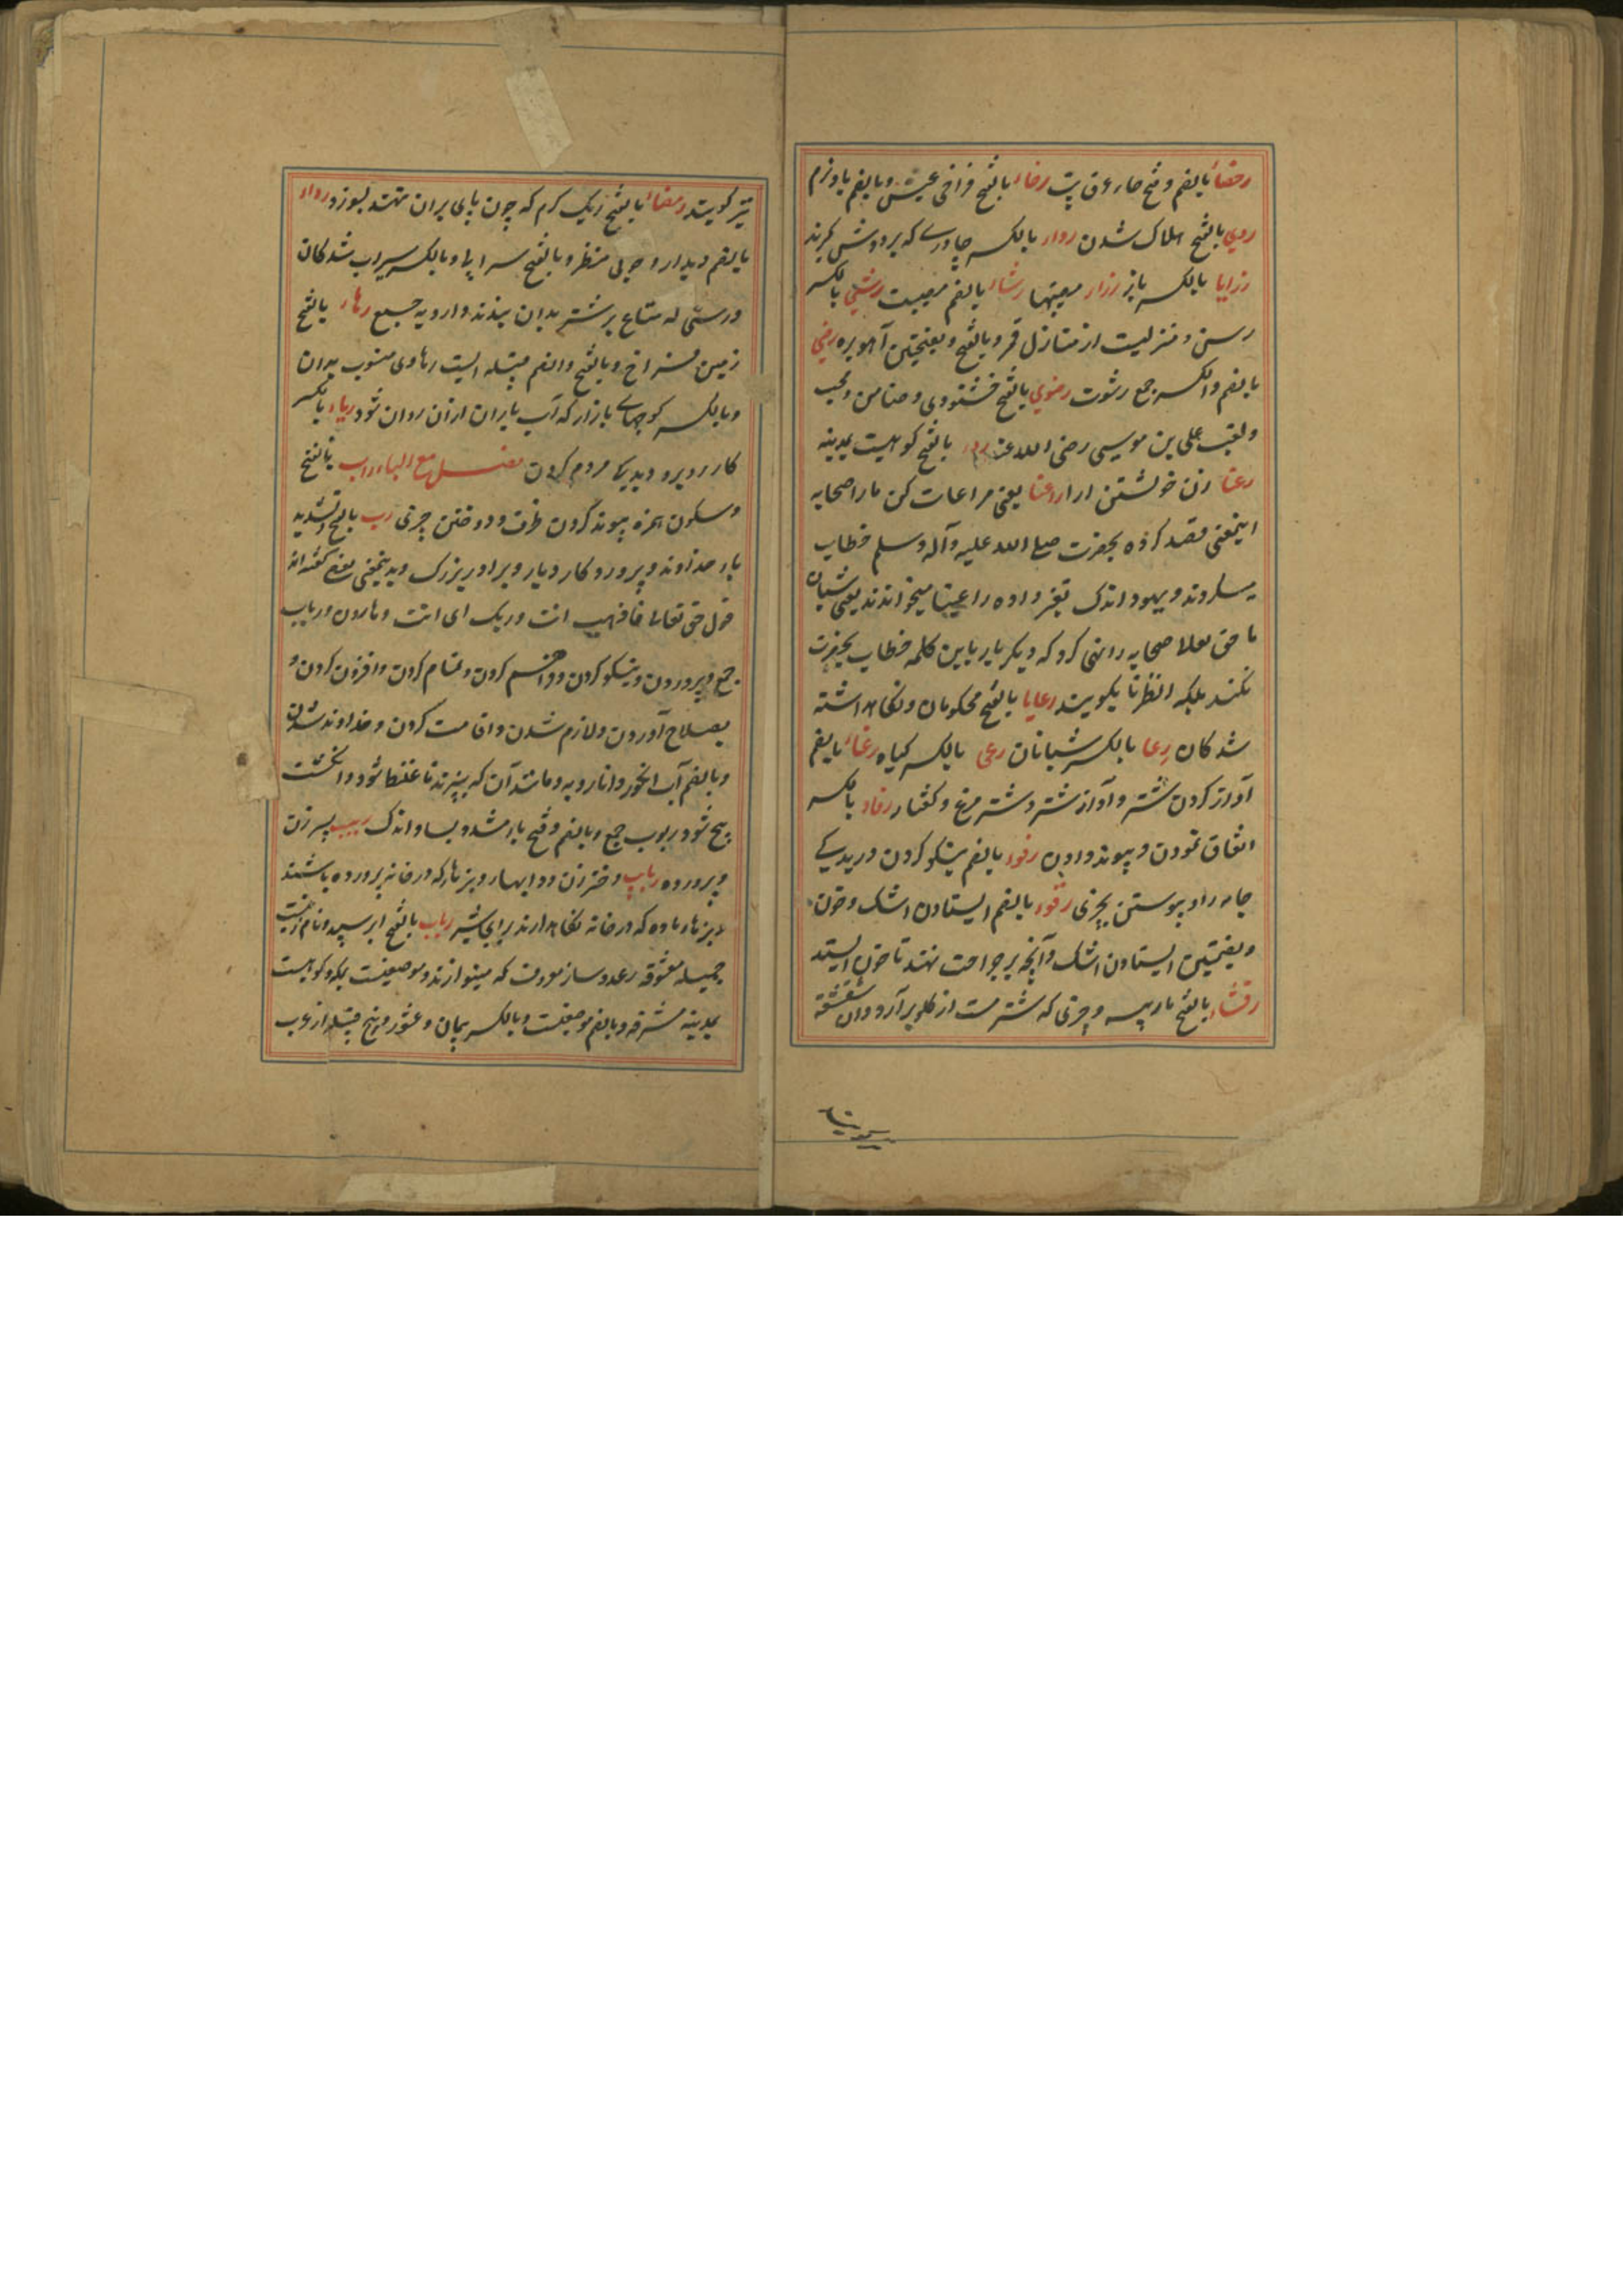 رحضاء بالضم و فتح حاء عرق تب رخاء بالفتح فراخی عیش و بالضم باد نرم
ردی بالفتح هلاک شدن رداء بالکسر چادرے که بر دوش گیرند
رزایا بالکسر مصیبتها رشاء بالضم رشی بالکسر
رسن و منزلیست از منازل قمر و بالفتح و بفتحتین آهوبره رشی
بالضم والکسر جمع رشوت رضوی بالفتح خشنودی و ضامن و محب
ولقب علی بن موسی رضی الله عنه بالفتح کوهیست بمدینه
رعنا زن خویشتن آرا راعنا یعنی مراعات کن ما را صحابه
اینمعنی قصد کرده بحضرت صلی الله علیه وآله وسلم خطاب
میکردند و یهود اندک تغیر داده راعینا میخواندند یعنی شبان
ما حق تعالی صحابه را نهی کرد که دیگر بار باین کلمه خطاب بحضرت
نکنند بلکه انظرنا بگویند رعایا بالفتح محکومان و نگاهداشته
شدگان رعا بالکسر شبانان رعی بالکسر گیاه رغاء بالضم
آواز کردن شتر و آواز شتر و شترمرغ و کفتار رفاء بالکسر
اتفاق نمودن و پیوند دادن رفوء بالضم نیکو کردن دریدگے
جامه را و پیوستن بچیزی رقوء بالضم ایستادن اشک و خون
و بفتحتین ایستادن اشک و آنچه بر جراحت نهند تا خون ایستد
رقشاء بالفتح مار پیسه و چیزی که شتر مست از گلو برآرد و آن شقشقه
نیز گویند رمضاء بالفتح ریگ گرم که چون پای بران نهند بسوزد رواء
بالضم دیدار و خوبی منظر و بالفتح سیرابی و بالکسر سیراب شدگان
و رسنی که متاع بر شتر بدان بندند و ارویه جمع رهاء بالفتح
زمین فراخ و بالفتح والضم قبیله ایست رهاوی منسوب بدان
و بالکسر کوچهاے بازار که آب باران ازان روان شود ریاء بالکسر
کار بروے و دید مردم کردن فصل مع الباء راب بالفتح
و سکون همزه پیوند کردن ظرف و دوختن چیزی رب بالفتح و تشدید
باء خداوند و پرورد کار و یار و برادر بزرگ و بدینمعنی بعضے گفته اند
قول حق تعالی فاذهب انت وربک ای انت وهارون و ارباب
جمع و پروردن و نیکو کردن و فراهم کردن و تمام کردن و افزون کردن و
بصلاح آوردن و لازم شدن و اقامت کردن و خداوند شدن
و بالضم آب انگور و انار و به و مانند آن که بپزند تا غلیظ شود و انگشت
پیچ شود ربوب جمع و بالضم و فتح باء مشدد بسا و اندک ربیب پسر زن
و پرورده ربایب دختر زن و دایها و بزها که در خانه پرورده باشند
و بزهاء ماده که در خانه نگاهدارند برای شیر رباب بالفتح ابر سپید و نام زنیست
جمیله معشوقه رعد و ساز معروف که مینوازند و موضعیست بمکه و کوهیست
بمدینه مشرفه و بالضم موضعیست و بالکسر پیمان و عشور و پنج قبیله از عرب